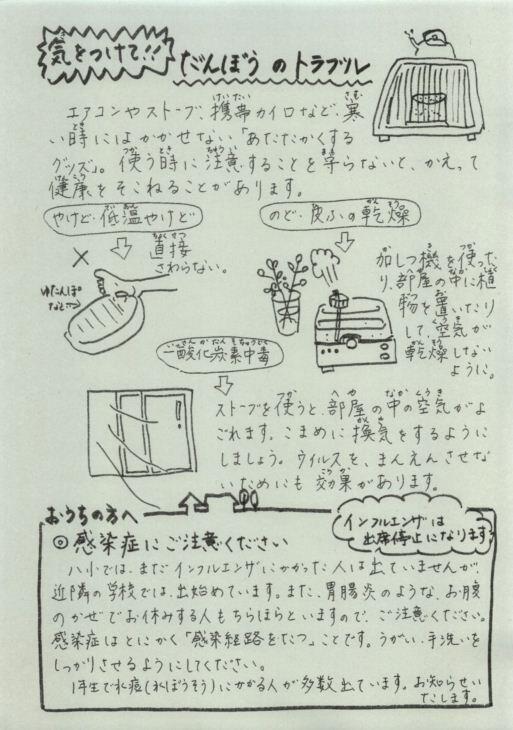 気をつけて!! だんぼうのトラブル
エアコンやストーブ、携帯カイロなど、寒
い時にはかかせない「あたたかくする
グッズ」。使う時に注意することを守らないと、かえって
健康をそこねることがあります。
やけど・低温やけど
直接
さわらない。
ゆたんぽ
など
のど・皮ふの乾燥
加しつ機を使った
り、部屋の中に植
物を置いたり
して、空気が
乾燥しない
ように。
一酸化炭素中毒
ストーブを使うと、部屋の中の空気がよ
ごれます。こまめに換気をするように
しましょう。ウイルスを、まんえんさせな
いためにも効果があります。
おうちの方へ
インフルエンザは
出席停止になります
◎感染症にご注意ください
八小では、まだインフルエンザにかかった人は出ていませんが、
近隣の学校では、出始めています。また、胃腸炎のような、お腹
のかぜでお休みする人もちらほらといますので、ご注意ください。
感染症はとにかく「感染経路をたつ」ことです。うがい、手洗いを
しっかりさせるようにしてください。
1年生で水痘(水ぼうそう)にかかる人が多数出ています。お知らせい
たします。